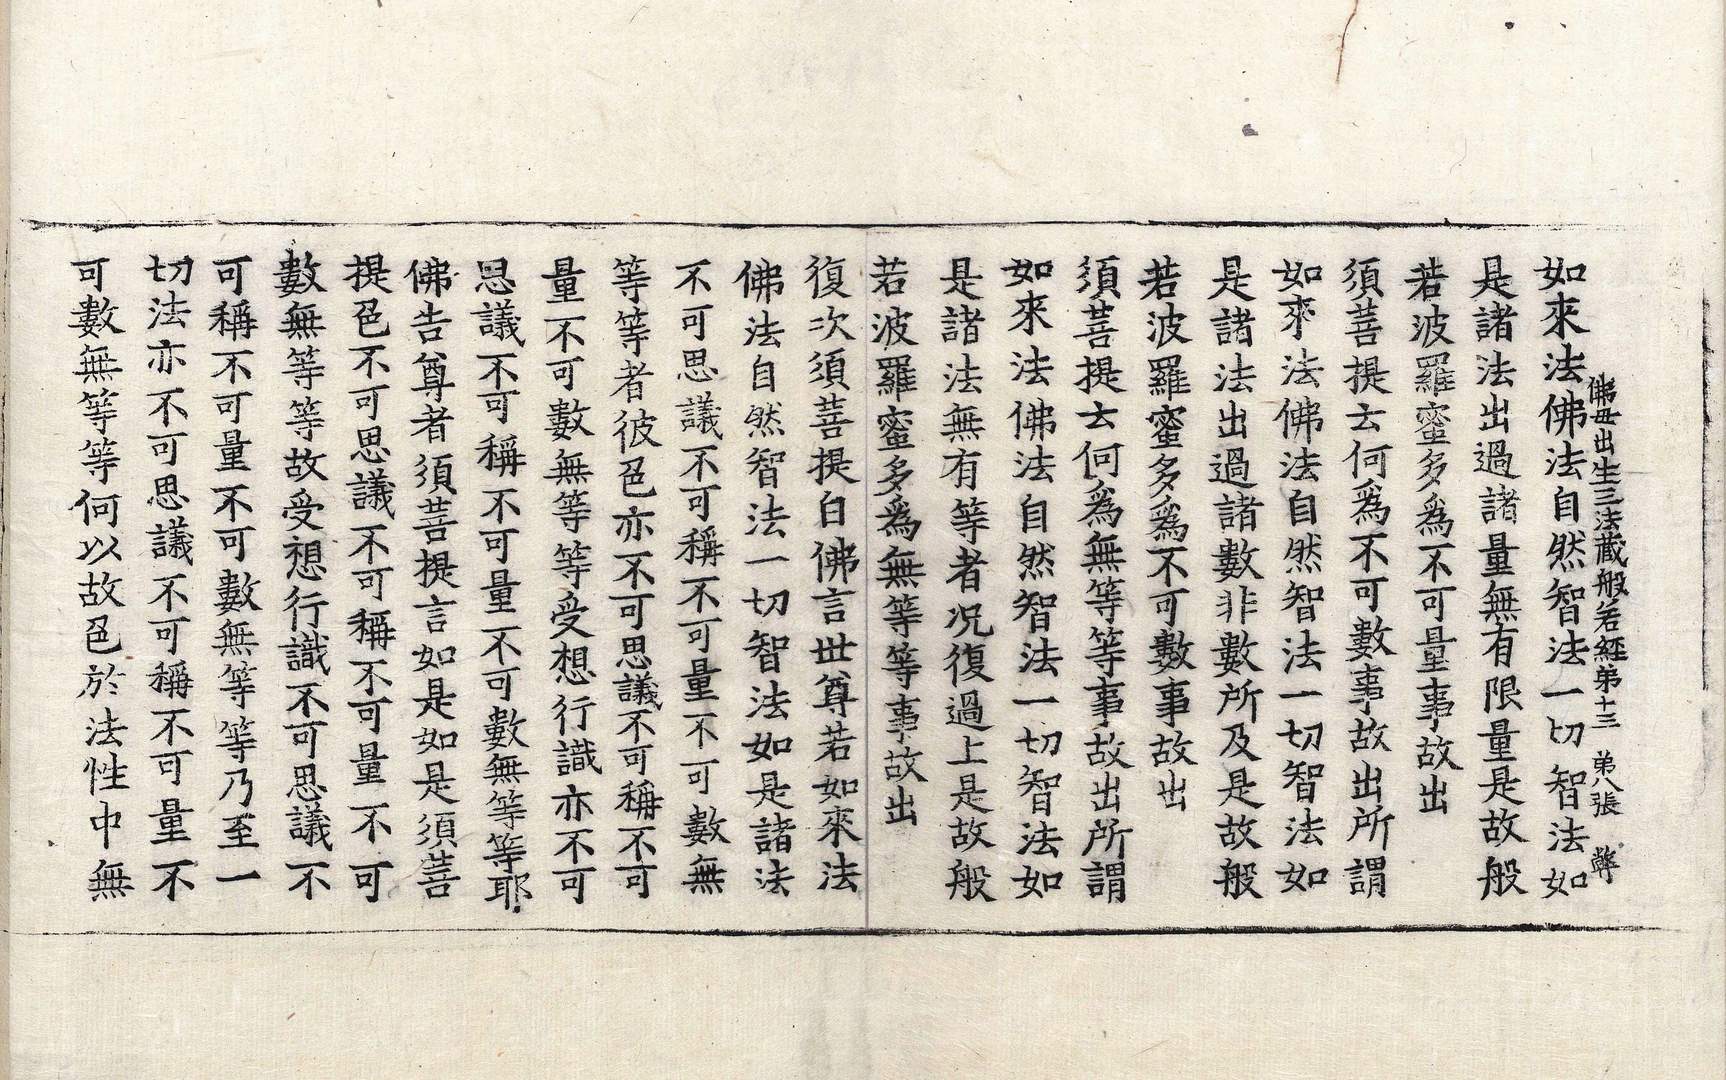 佛母出生三法藏般若經第十三 第八張
如來法佛法自然智法一切智法如
是諸法出過諸量無有限量是故般
若波羅蜜多爲不可量事故出
須菩提云何爲不可數事故出所謂
如來法佛法自然智法一切智法如
是諸法出過諸數非數所及是故般
若波羅蜜多爲不可數事故出
須菩提云何爲無等等事故出所謂
如來法佛法自然智法一切智法如
是諸法無有等者况復過上是故般
若波羅蜜多爲無等等事故出
復次須菩提白佛言世尊若如來法
佛法自然智法一切智法如是諸法
不可思議不可稱不可量不可數無
等等者彼色亦不可思議不可稱不可
量不可數無等等受想行識亦不可
思議不可稱不可量不可數無等等耶
佛告尊者須菩提言如是如是須菩
提色不可思議不可稱不可量不可
數無等等故受想行識不可思議不
可稱不可量不可數無等等乃至一
切法亦不可思議不可稱不可量不
可數無等等何以故色於法性中無